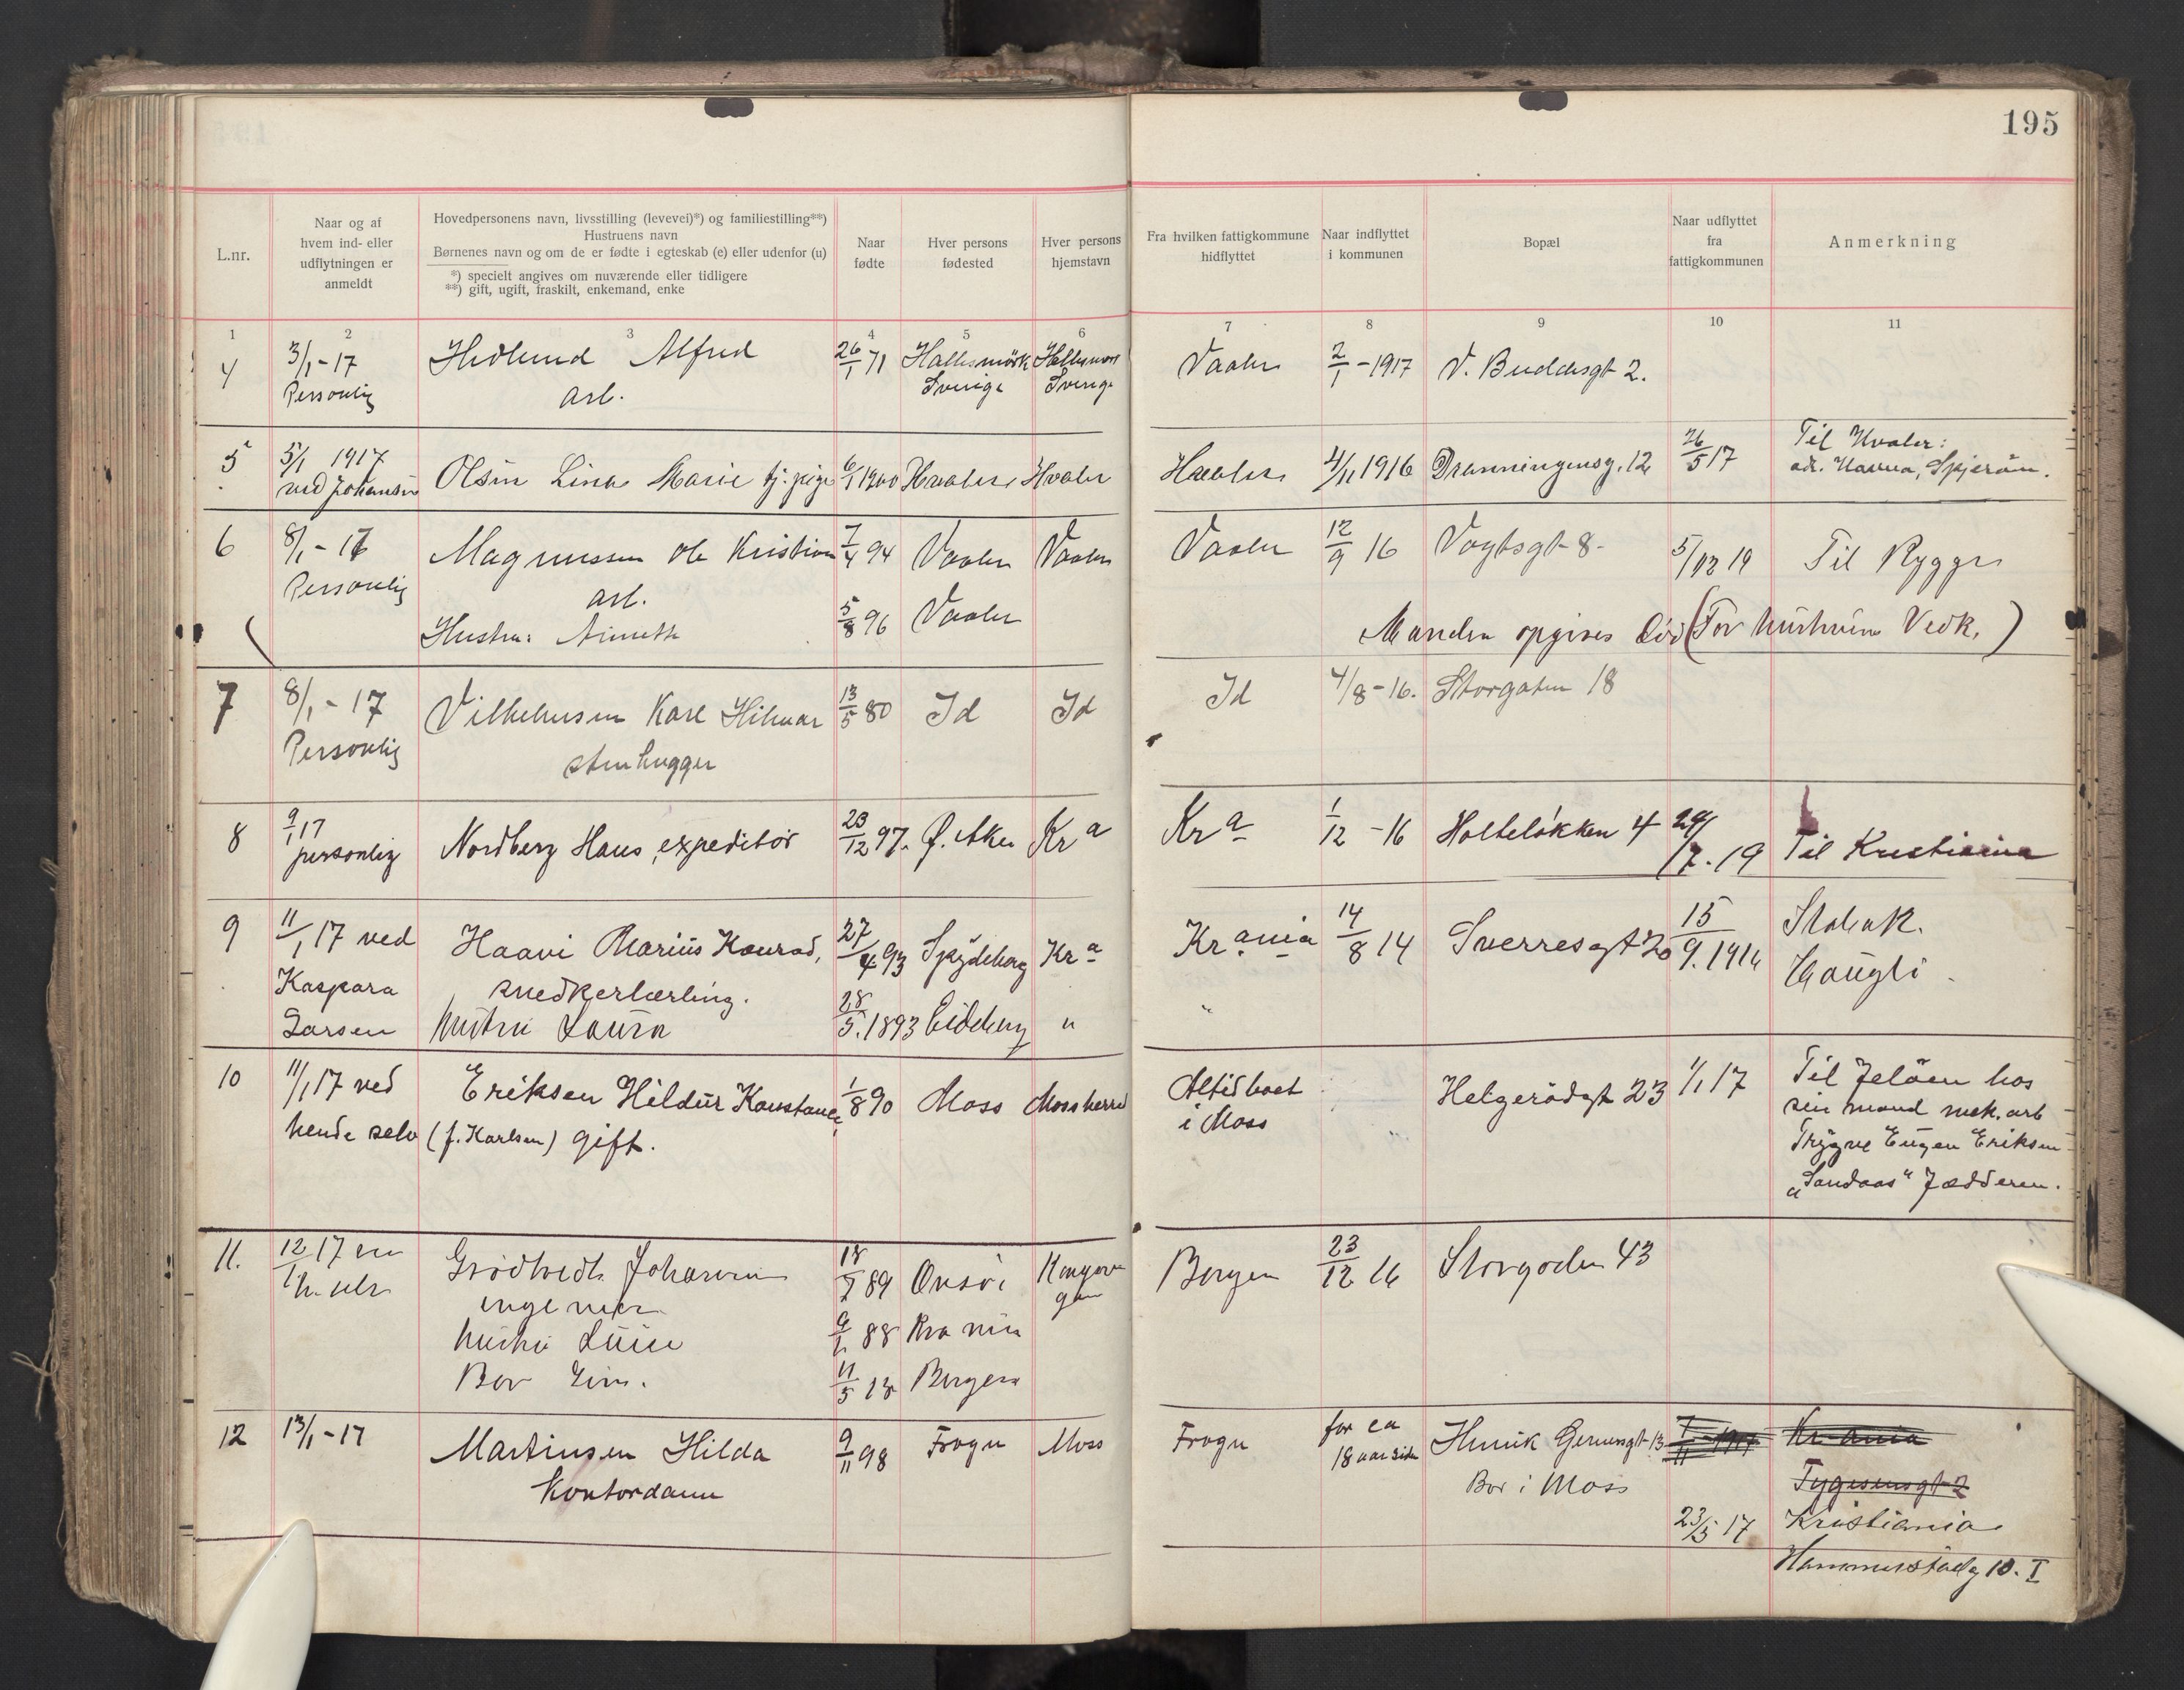 195
L.nr.
Naar og af
hvem ind- eller
udflytningen er
anmeldt
Hovedpersonens navn, livsstilling (levevei)*) og familiestilling**)
Hustruens navn
Børnenes navn og om de er fødte i egteskab (e) eller udenfor (u)
*) specielt angives om nuværende eller tidligere
**) gift, ugift, fraskilt, enkemand, enke
Naar
fødte
Hver persons
fødested
Hver persons
hjemstavn
Fra hvilken fattigkommune
hidflyttet
Naar indflyttet
i kommunen
Bopæl
Naar udflyttet
fra
fattigkommunen
Anmerkning
1 2 3 4 5 6 7 8 9 10 11
4 3/1-17 Hedlund Alfred 26/1 71 Vaaler 2/1-1917 V. Buddesgt 2.
Personlig arb. Sverige Sverige
5 5/1 1917 Olsen Lina Marie tj. pige 6/1 1900 Hvaler Hvaler 4/11 1916 Dronningensg. 12 26/5 17 Til Hvaler:
ved Johansen adr. Spjerøen.
6 8/1-17 Magnussen Ole Kristian 7/4 94 Vaaler Vaaler Vaaler 12/9 16 Vogtsgt 8- 5/12 19 Til Rygge
Personlig arb.
Hustru: Annette 5/8 96 Vaaler
Manden opgives død (For hustruens Vedk.)
7 8/1-17 Vilhelmsen Karl Hilmar 13/5 80 Id Id Id 4/8-16. Storgaten 18
Personlig stenhugger
8 9/1 17 Nordberg Hans, expeditør 23/12 97. Ø. Aker Kra Kra 1/12-16 Holteløkken 4 29/7.19 Til Kristiania
personlig
9 11/1 17 ved Haavi Marius Konrad, 27/4 93 Spydeberg Kra Krania 14/8 14 Sverresgt 20 15/9.1916
Kaspara snedkerlærling.
Larsen hustru Laura 28/5.1893 Eidsberg " "
Haugli
10 11/1 17 ved Eriksen Hildur Konstance, 1/8 90 Moss Moss herred Altid boet Helgerødgt 23 1/1 17 Til Jeløen hos
hende selv (f. Karlsen) gift. i Moss sin mand mek. arb
Trygve Eugen Eriksen
"Sandaas" Jødderen.
11. 12/1 17 Johannes 89 Onsø Bergen 23/12 16 Storgaden 43
ingeniør
hustru 88 Kra nia
Bar 11/5 13 Bergen
12 13/1-17 Martinsen Hilda 9/11 98 Frogn Moss Frogn for ca Henrik Gernersgt 13 Krania
Kontordame 18 aar siden Bor i Moss Tygesensgt 2
23/5 17 Kristiania
Hammerstadg 10. I